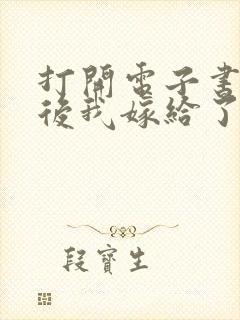 打開電子書
後我嫁給了
段寶生